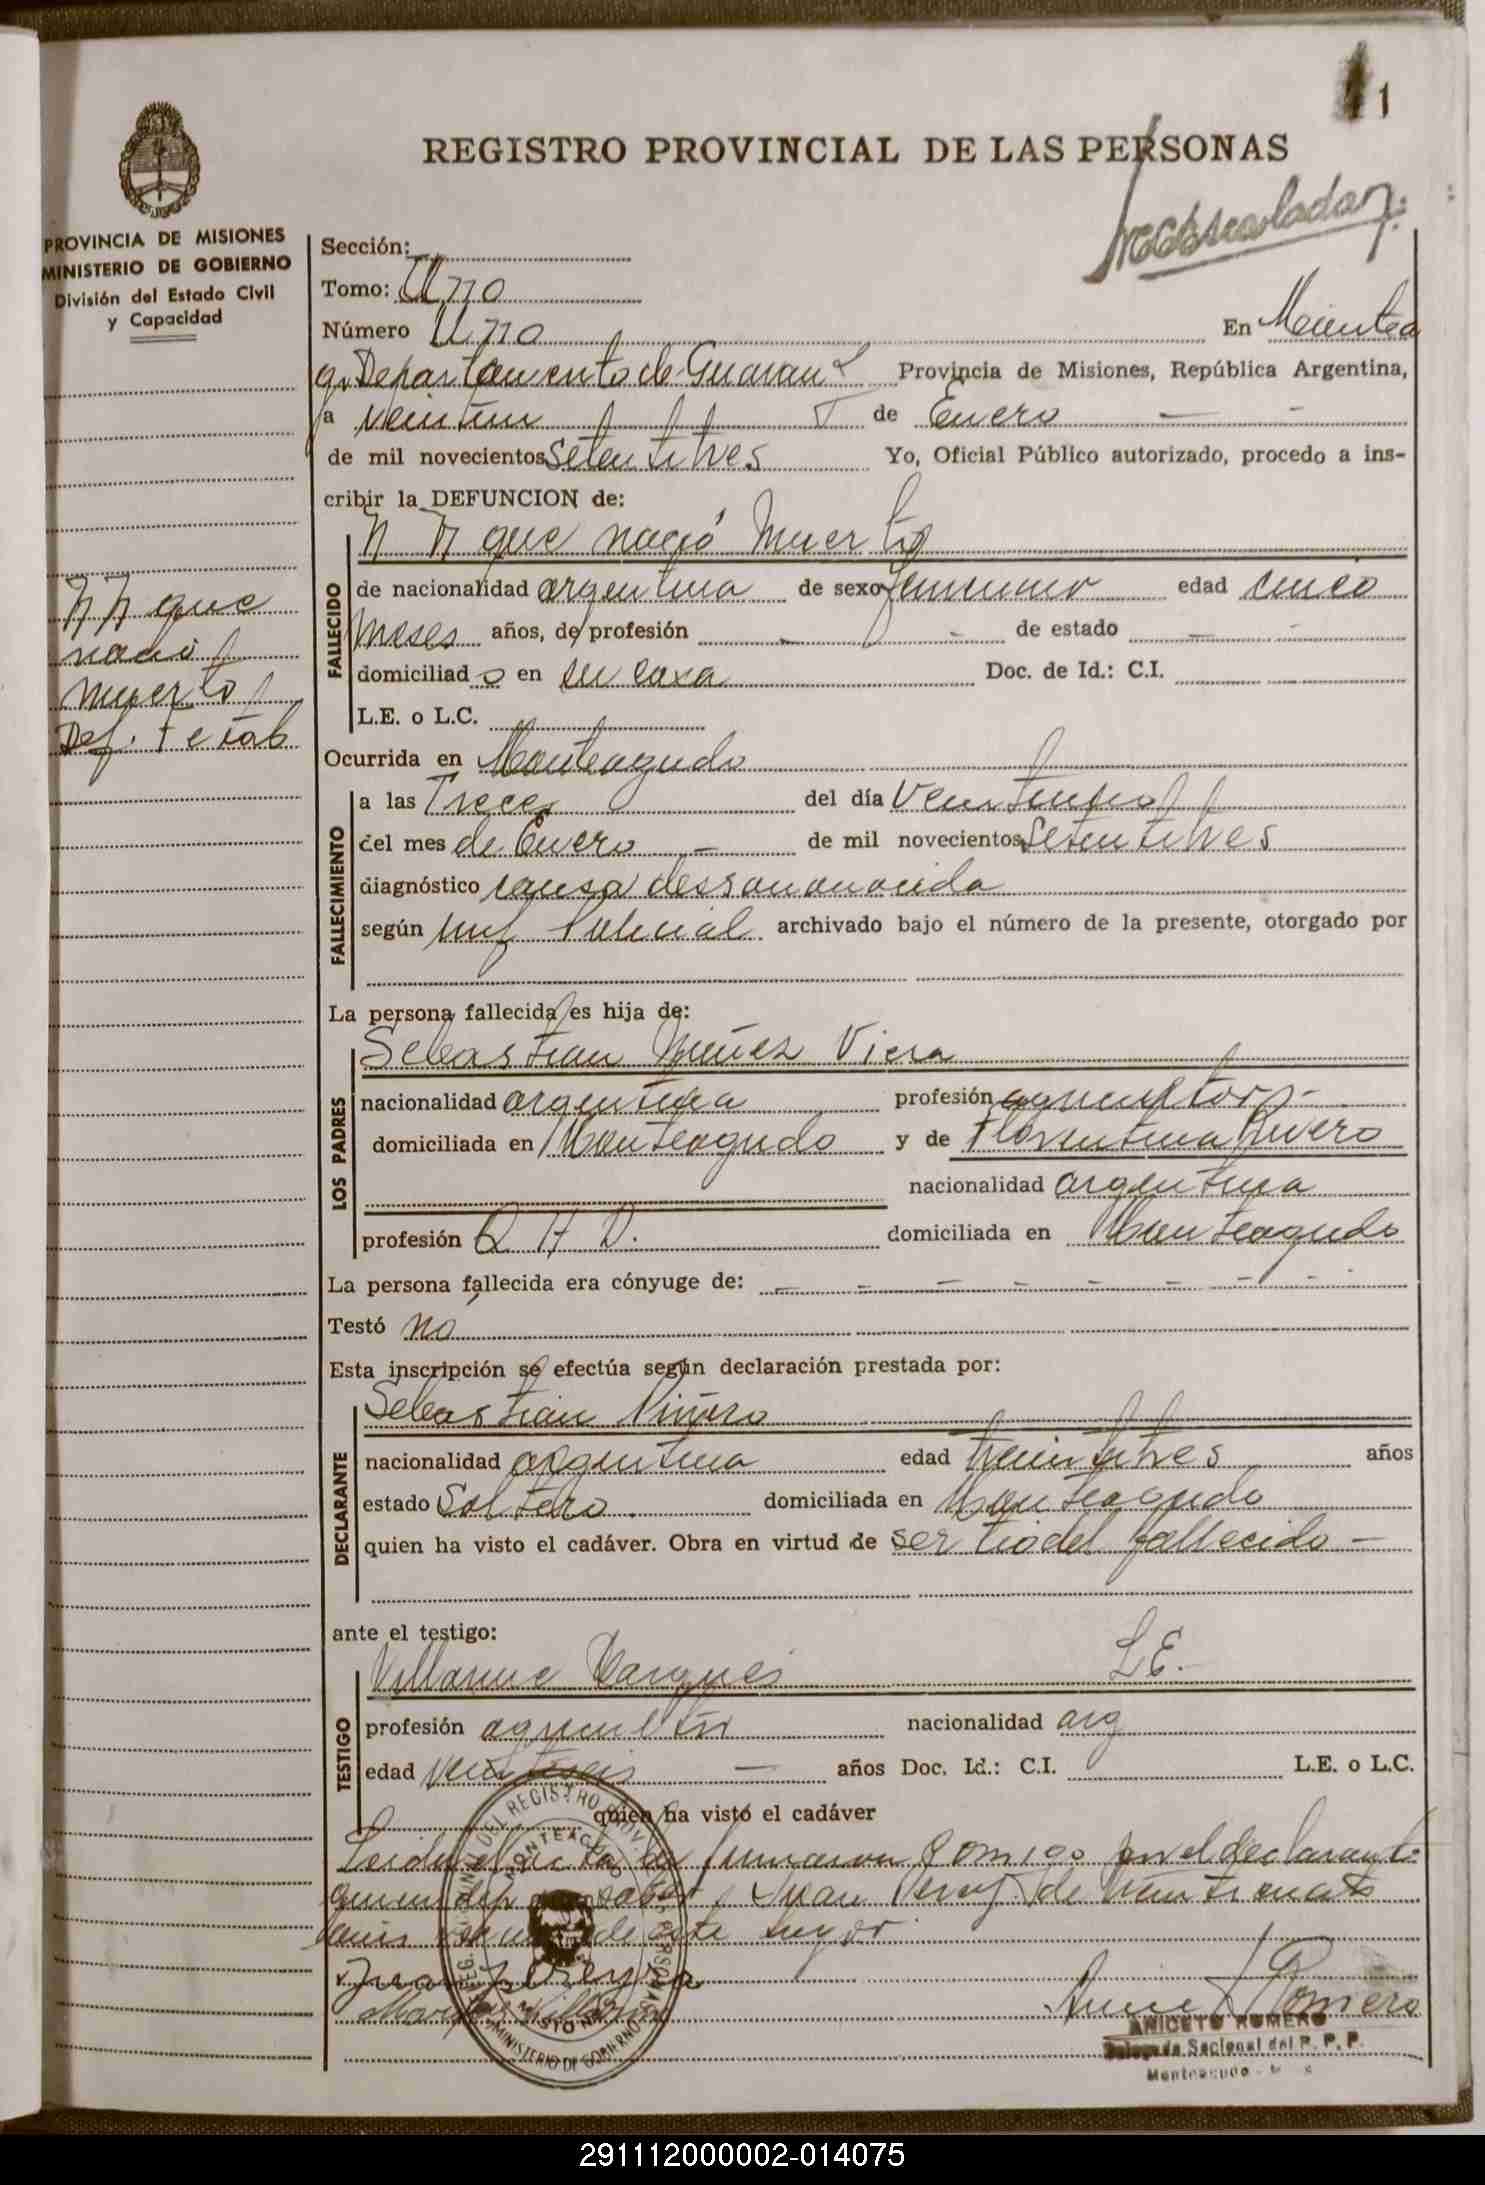 1
REGISTRO PROVINCIAL DE LAS PERSONAS
PROVINCIA DE MISIONES
MINISTERIO DE GOBIERNO
División del Estado Civil
y Capacidad
Sección:
Tomo: Uno
Número Uno En
Departamento de Guaraní Provincia de Misiones, República Argentina,
a de Enero
de mil novecientos Setentitres Yo, Oficial Público autorizado, procedo a ins-
cribir la DEFUNCION de:
N N que nació Muerto
FALLECIDO
de nacionalidad argentina de sexo femenino edad cinco
Meses años, de profesión de estado
domiciliad o en su casa Doc. de Id.: C.I.
L.E. o L.C.
N N que
nació
muerto
Def. Fetal
Ocurrida en Monteagudo
FALLECIMIENTO
a las Trece del día
del mes de Enero de mil novecientos Setentitres
diagnóstico causa
según inf Policial archivado bajo el número de la presente, otorgado por
La persona fallecida es hija de:
LOS PADRES
Sebastian Nuñez Viera
nacionalidad argentina profesión agricultor
domiciliada en Monteagudo y de Florentina Rivero
nacionalidad argentina
profesión Q H D. domiciliada en Monteagudo
La persona fallecida era cónyuge de:
Testó no
Esta inscripción se efectúa según declaración prestada por:
DECLARANTE
Sebastian
nacionalidad argentina edad treintitres años
estado Soltero domiciliada en Monteagudo
quien ha visto el cadáver. Obra en virtud de ser tio del fallecido
ante el testigo:
TESTIGO
L E.
profesión nacionalidad arg
edad años Doc. Id.: C.I. L.E. o L.C.
quien ha visto el cadáver
Leida el acta la firmaron conmigo por el declarante
Juan
de este lugar
Romero
ANICETO ROMERO
Seccional del R. P. P.
Monteagudo
MINISTERIO DE GOBIERNO
291112000002-014075